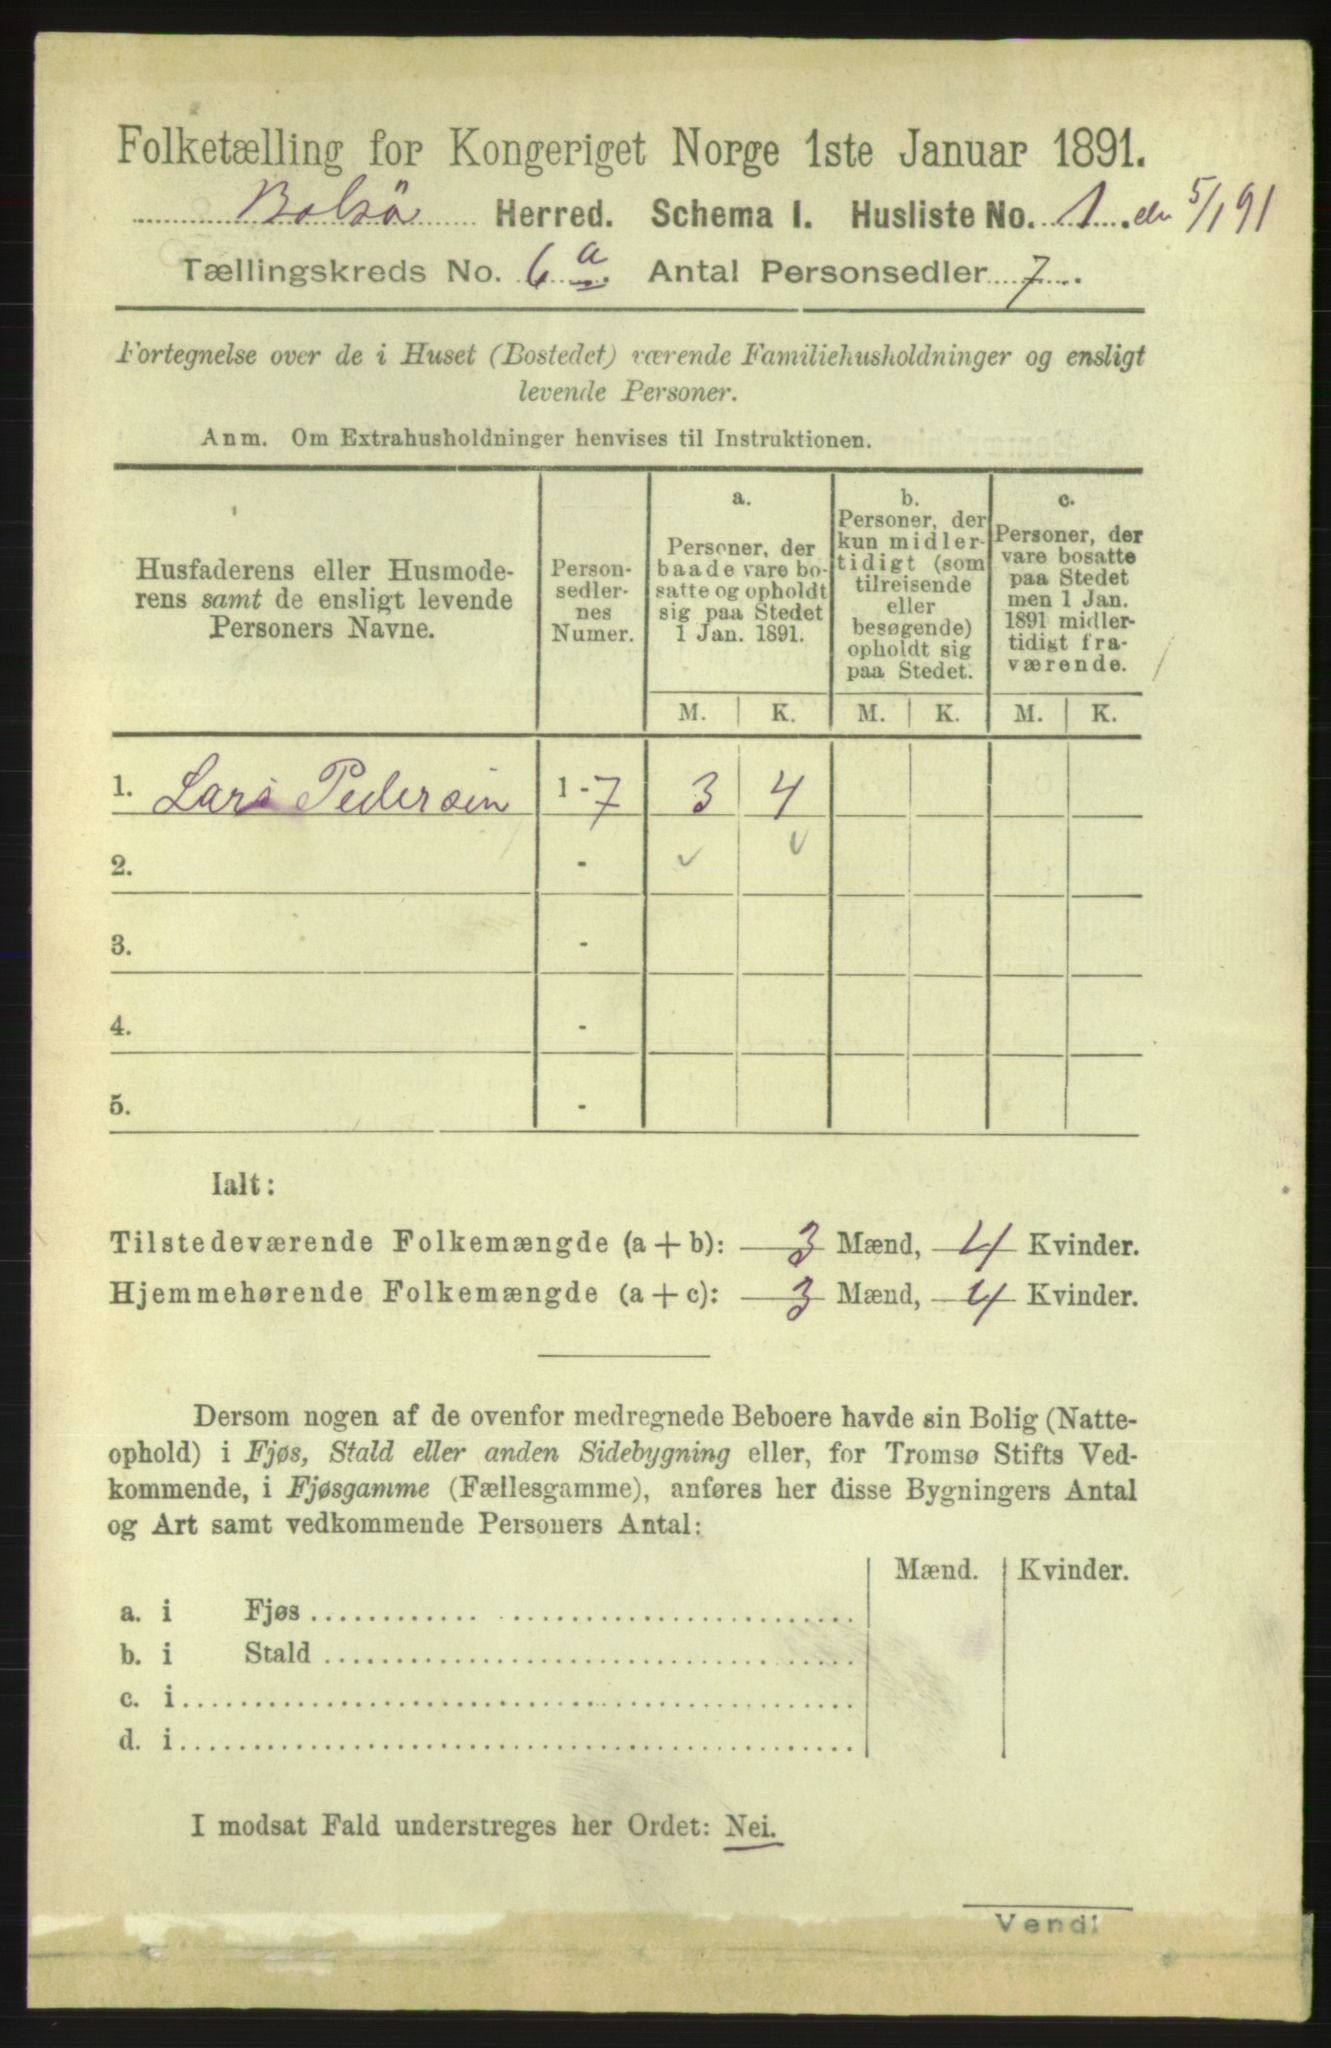 Folketælling for Kongeriget Norge 1ste Januar 1891.
Bolsö Herred. Schema I. Husliste No. 1. den 5/1 91
Tællingskreds No. 6 a. Antal Personsedler 7.
Fortegnelse over de i Huset (Bostedet) værende Familiehusholdninger og ensligt
levende Personer.
Anm. Om Extrahusholdninger henvises til Instruktionen.
Husfaderens eller Husmode-
rens samt de ensligt levende
Personers Navne.
Person-
sedler-
nes
Numer.
a.
Personer, der
baade vare bo-
satte og opholdt
sig paa Stedet
1 Jan. 1891.
b.
Personer, der
kun midler-
tidigt (som
tilreisende
eller
besøgende)
opholdt sig
paa Stedet.
c.
Personer, der
vare bosatte
paa Stedet
men 1 Jan.
1891 midler-
tidigt fra-
værende.
M. K. M. K. M. K.
1. Lars Pedersen 1 - 7 3 4
2. -
3. -
4. -
5. -
Ialt:
Tilstedeværende Folkemængde (a + b): 3 Mænd, 4 Kvinder.
Hjemmehørende Folkemængde (a + c): 3 Mænd, 4 Kvinder.
Dersom nogen af de ovenfor medregnede Beboere havde sin Bolig (Natte-
ophold) i Fjøs, Stald eller anden Sidebygning eller, for Tromsø Stifts Ved-
kommende, i Fjøsgamme (Fællesgamme), anføres her disse Bygningers Antal
og Art samt vedkommende Personers Antal:
Mænd. Kvinder.
a. i Fjøs
b. i Stald
c. i
d. i
I modsat Fald understreges her Ordet: Nei.
Vend!